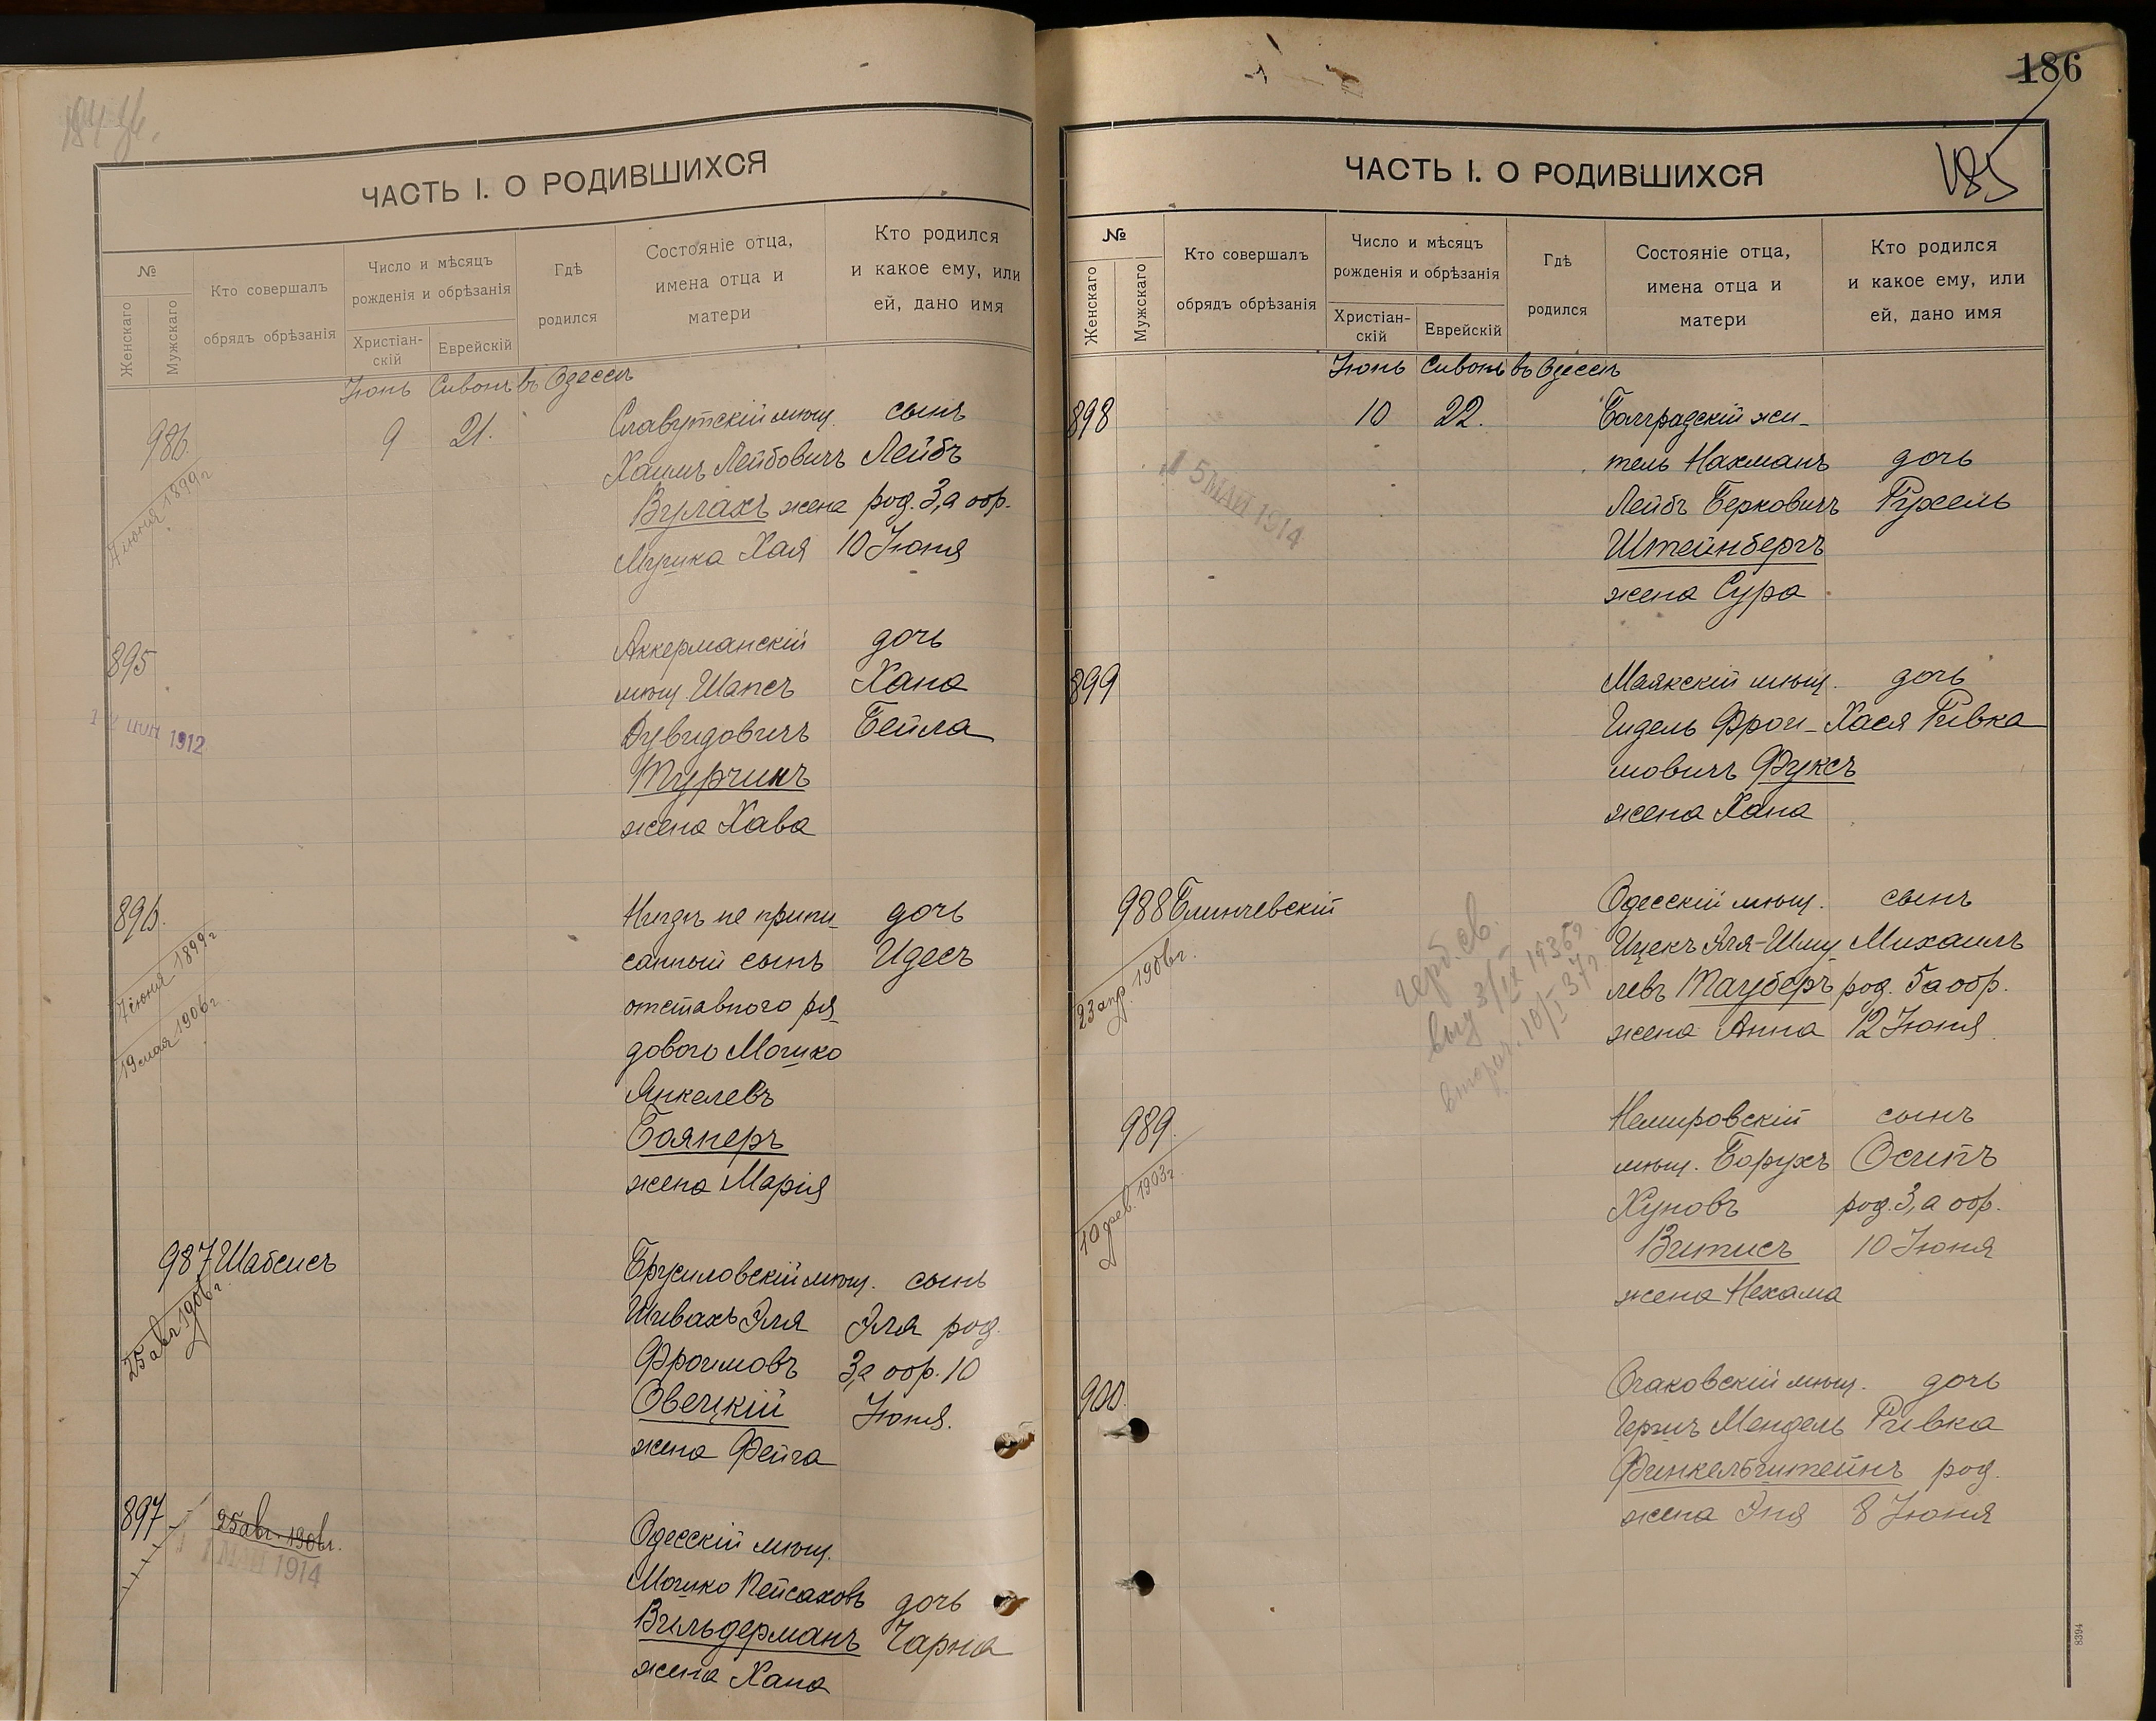 ЧАСТЬ I. О РОДИВШИХСЯ
№
Женскаго
Мужскаго
Кто совершалъ
обрядъ обрѣзанія
Число и мѣсяцъ
рожденія и обрѣзанія
Христіан-
скій
Еврейскій
Гдѣ
родился
Состояніе отца,
имена отца и
матери
Кто родился
и какое ему, или
ей, дано имя
Іюнь Сивонъ въ Одессѣ
986. 9 21. Славутскій мѣщ. сынъ
7 іюня 1899 г
Хаимъ Лейбовичъ Лейбъ
Вулахъ жена род. 3, а обр.
Мушка Хая 10 Іюня
895 Аккерманскій дочь
мѣщ. Шапсъ Хана
1912
Дувидовичъ Бейла
Турчинъ
жена Хава
896. Нигдѣ не припи- дочь
7 іюня 1899 г
19 мая 1906 г.
санный сынъ Идесъ
отставного ря-
дового Мошко
Янкелевъ
Боянеръ
жена Марія
987 Шабсисъ Брусиловскій мѣщ. сынъ
25 авг 1906 г.
Шивахъ Эля Эля род.
Фроимовъ 3, а обр. 10
Овецкій Іюня.
жена Фейга
897 25 авг. 1906 г.
МАЙ 1914
Одесскій мѣщ.
Мошко Пейсаховъ дочь
Вильдерманъ Чарна
жена Хана
186
185
ЧАСТЬ I. О РОДИВШИХСЯ
№
Женскаго
Мужскаго
Кто совершалъ
обрядъ обрѣзанія
Число и мѣсяцъ
рожденія и обрѣзанія
Христіан-
скій
Еврейскій
Гдѣ
родился
Состояніе отца,
имена отца и
матери
Кто родился
и какое ему, или
ей, дано имя
Іюнь Сивонъ въ Одессѣ
898 10 22. Болградскій жи-
5 МАЙ 1914
тель Нахманъ дочь
Лейбъ Берковичъ Рухель
Штейнбергъ
жена Сура
899 Маякскій мѣщ. дочь
Гидель Фрои- Хася Ривка
мовичъ Фуксъ
жена Хана
988 Блинчевскій Одесскій мѣщ. сынъ
23 апр. 1906 г.
герб. св.
выд 3/IX 1935 г
втор. 10/I 37 г.
Ицекъ Эля-Шму- Михаилъ
левъ Тауберъ род. 5 а обр.
жена Анна 12 Іюня
989. Немировскій сынъ
10 фев. 1903 г.
мѣщ. Борухъ Осипъ
Хуновъ род. 3, а обр.
Витисъ 10 Іюня
жена Нехама
900. Очаковскій мѣщ. дочь
Гершъ Мендель Ривка
Финкельштейнъ род.
жена Эня 8 Іюня
8394